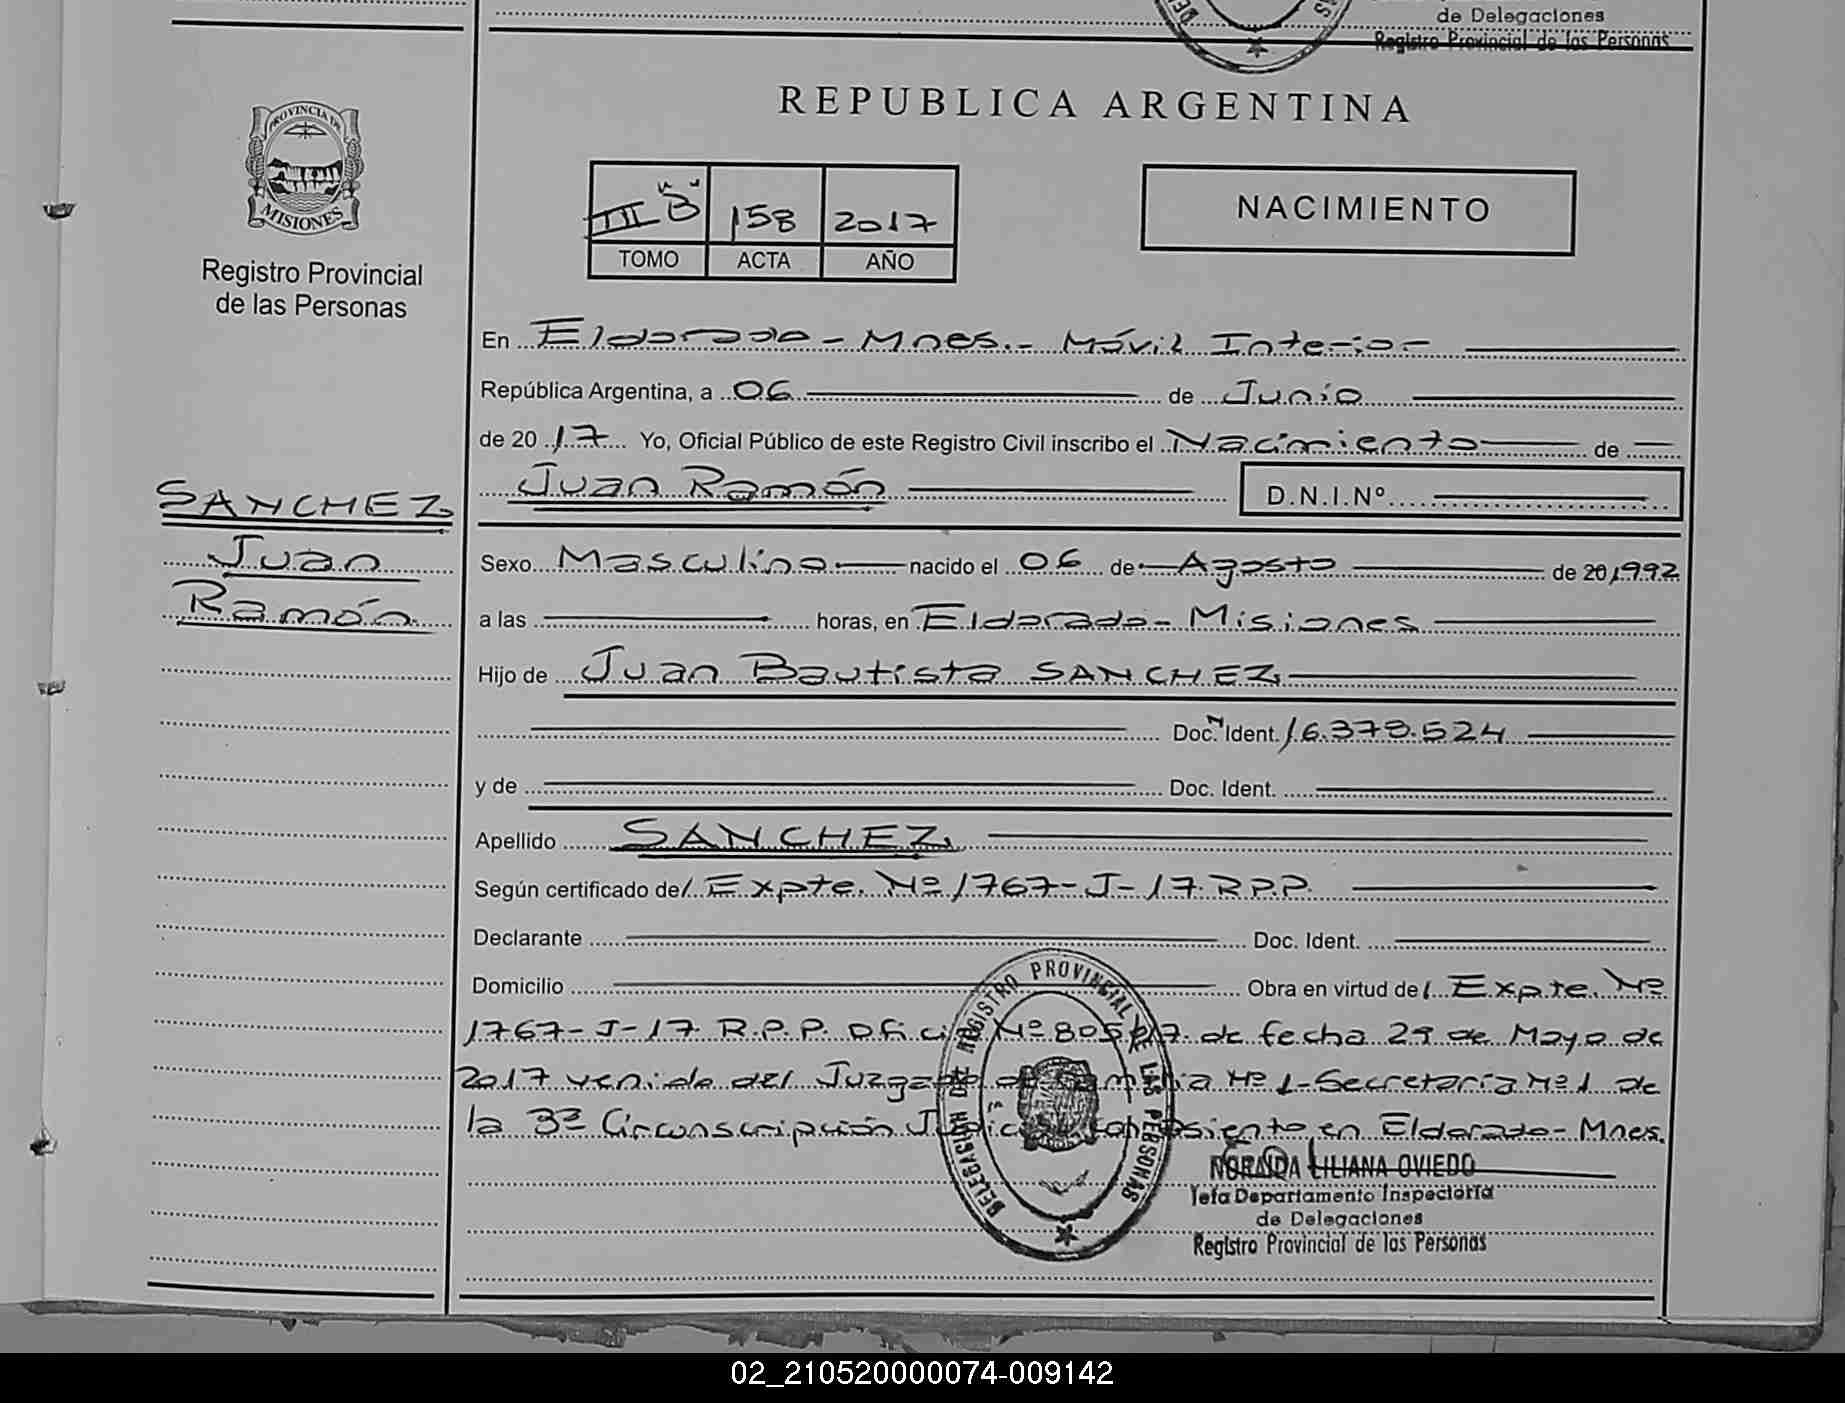 de Delegaciones
Registro Provincial de las Personas
PROVINCIA DE
MISIONES
Registro Provincial
de las Personas
REPUBLICA ARGENTINA
III "B" 158 2017
TOMO ACTA AÑO
NACIMIENTO
En Eldorado - Mnes. - Móvil Interior
República Argentina, a 06 de Junio
de 2017 Yo, Oficial Público de este Registro Civil inscribo el Nacimiento de
Juan Ramón D.N.I.Nº
SANCHEZ
Juan
Ramón
Sexo Masculino nacido el 06 de Agosto de 20 1992
a las horas, en Eldorado - Misiones
Hijo de Juan Bautista SANCHEZ
Doc. N Ident. 16.378.524
y de Doc. Ident.
Apellido SANCHEZ
Según certificado de/ Expte. Nº 1767-J-17. R.P.P.
Declarante Doc. Ident.
Domicilio Obra en virtud de/ Expte. Nº
1767-J-17. R.P.P. Oficio Nº 805/17. de fecha 29 de Mayo de
2017 venido del Juzgado de Familia Nº 1-Secretaría Nº 1 de
la 3ª Circunscripción Judicial con asiento en Eldorado - Mnes.
DELEGACION DEL REGISTRO PROVINCIAL DE LAS PERSONAS
NORAIDA LILIANA OVIEDO
Jefa Departamento Inspectoría
de Delegaciones
Registro Provincial de las Personas
02_210520000074-009142